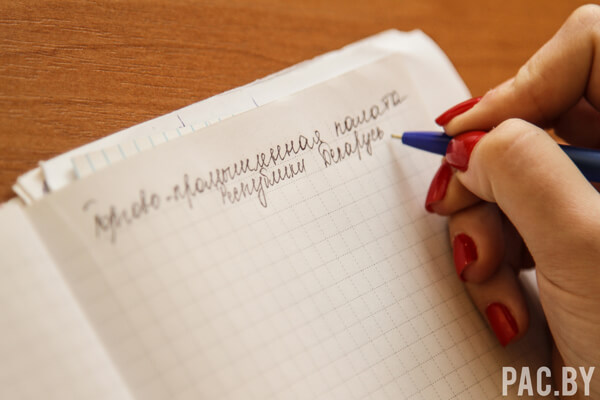 Торгово-промышленная палата
Республики Беларусь
PAC.BY